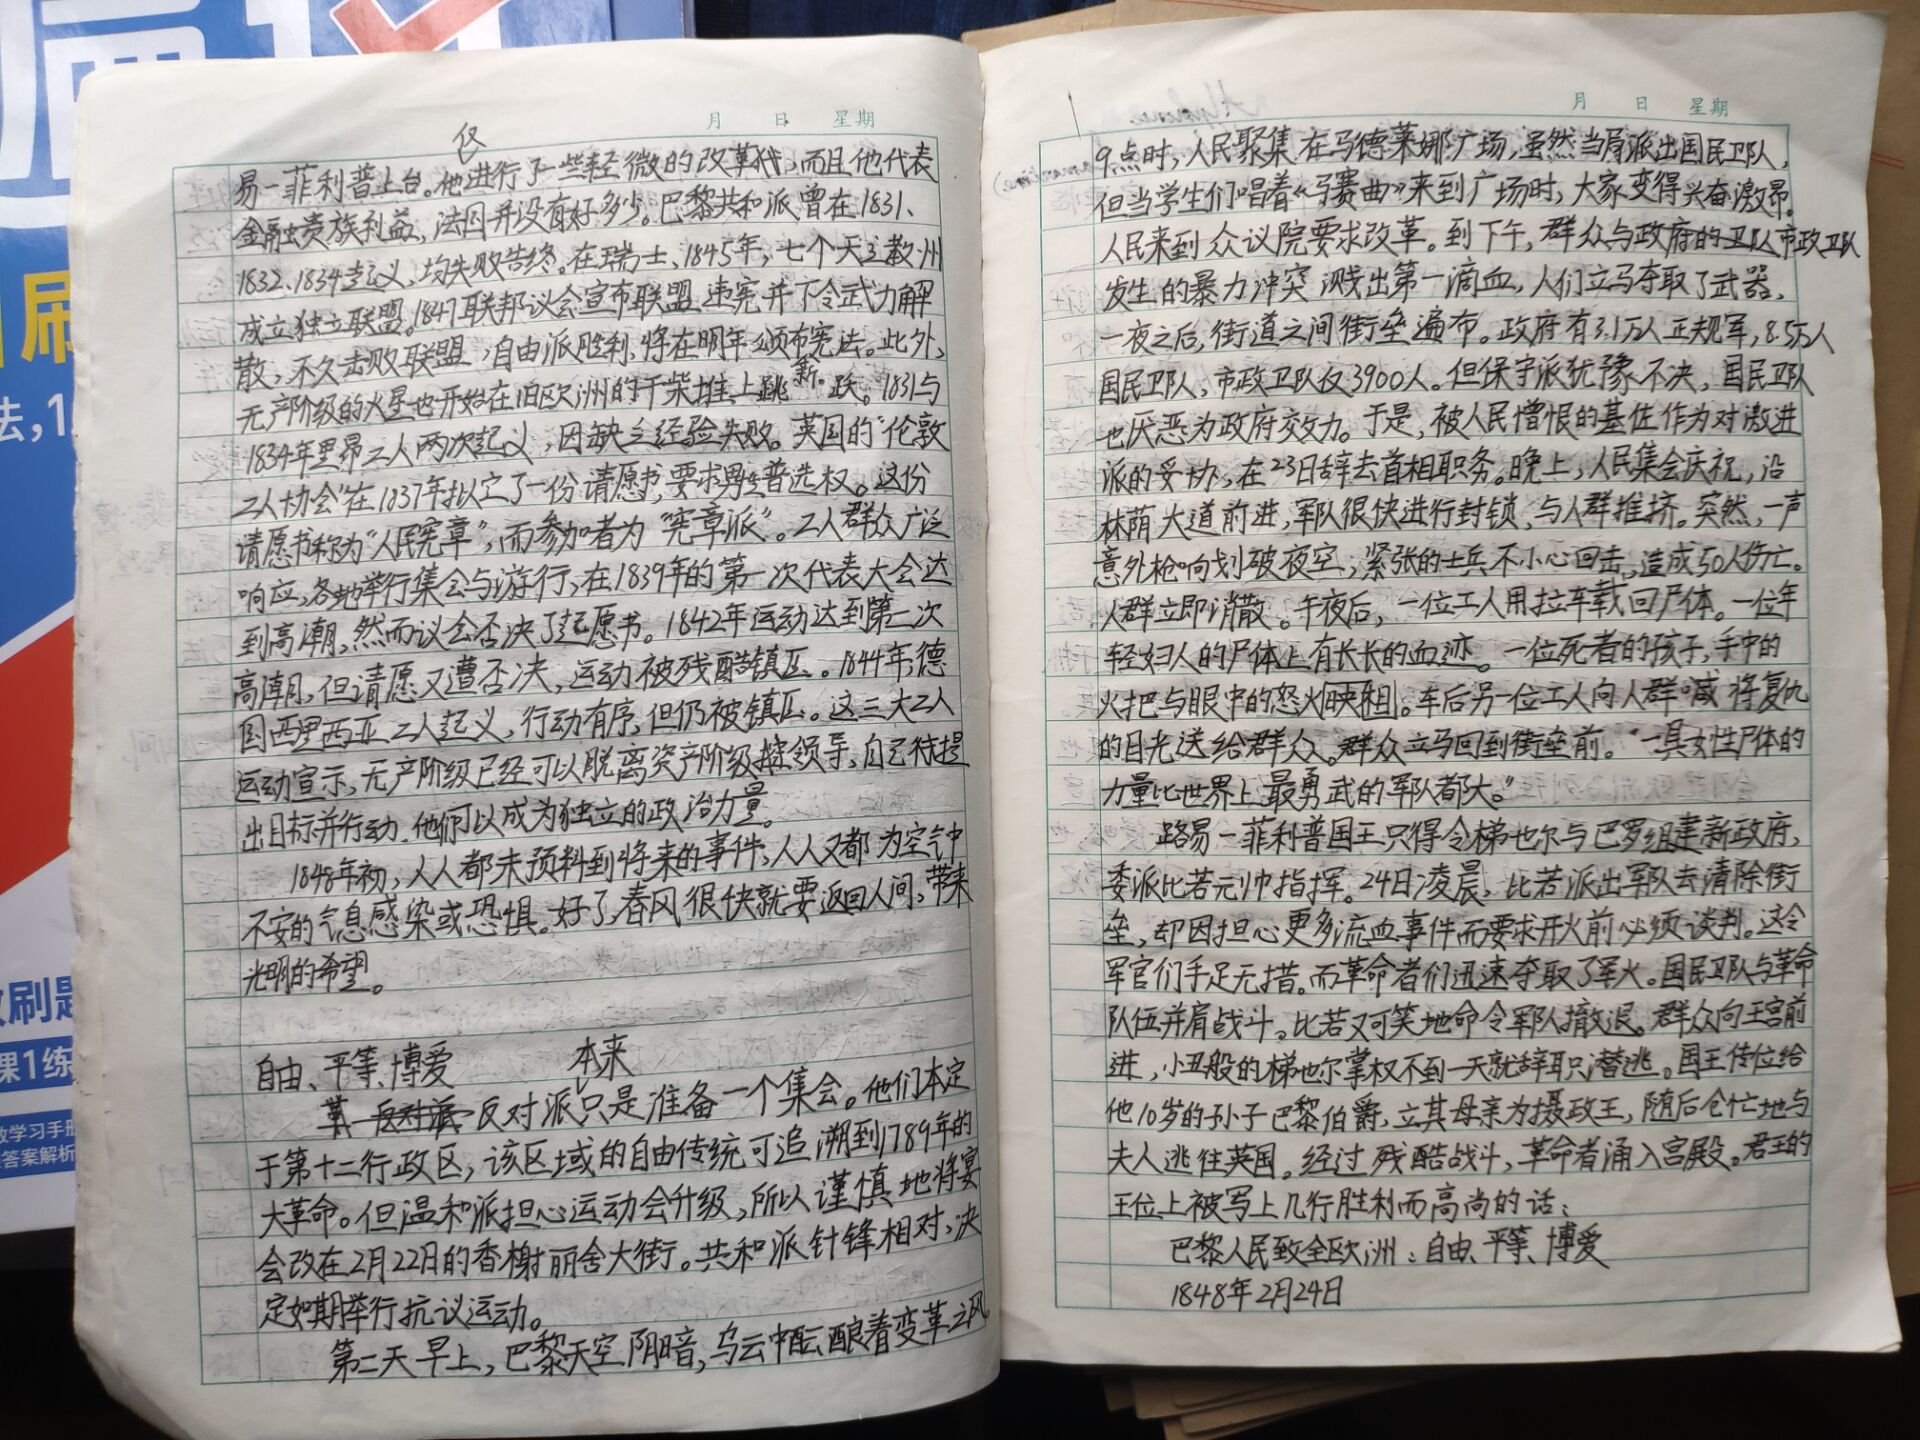 月 日 星期
仅
易一菲利普上台。他进行了一些轻微的改革，而且他代表
金融贵族利益，法国并没有好多少。巴黎共和派曾在1831、
1832、1834起义，均失败告终。在瑞士、1845年，七个天主教州
成立独立联盟。1847联邦议会宣布联盟违宪并下令武力解
散，不久击败联盟，自由派胜利，将在明年颁布宪法。此外，
新
无产阶级的火星也开始在旧欧洲的干柴堆上跳跃。1831与
1834年里昂工人两次起义，因缺乏经验失败。英国的“伦敦
工人协会”在1837年拟定了一份请愿书，要求男性普选权。这份
请愿书称为“人民宪章”，而参加者为“宪章派”。工人群众广泛
响应，各地举行集会与游行，在1839年的第一次代表大会达
到高潮，然而议会否决了起愿书。1842年运动达到第二次
高潮，但请愿又遭否决，运动被残酷镇压。1844年德
国西里西亚工人起义，行动有序，但仍被镇压。这三大工人
运动宣示，无产阶级已经可以脱离资产阶级领导，自己提
出目标并行动。他们可以成为独立的政治力量。
1848年初，人人都未预料到将来的事件，人人又都为空气中
不安的气息感染或恐惧。好了，春风很快就要返回人间，带来
光明的希望。
自由、平等、博爱
本来
反对派只是准备一个集会。他们本定
于第十二行政区，该区域的自由传统可追溯到1789年的
大革命。但温和派担心运动会升级，所以谨慎地将宴
会改在2月22日的香榭丽舍大街。共和派针锋相对，决
定如期举行抗议运动。
第二天早上，巴黎天空阴暗，乌云中酝酿着变革之风。
月 日 星期
9点时，人民聚集在马德莱娜广场，虽然当局派出国民卫队，
但当学生们唱着《马赛曲》来到广场时，大家变得兴奋激昂。
人民来到众议院要求改革。到下午，群众与政府的市政卫队
发生的暴力冲突溅出第一滴血，人们立马夺取了武器，
一夜之后，街道之间街垒遍布。政府有3.1万人正规军，8.5万人
国民卫队，市政卫队仅3900人。但保守派犹豫不决，国民卫队
也厌恶为政府效力。于是，被人民憎恨的基佐作为对激进
派的妥协，在23日辞去首相职务。晚上，人民集会庆祝，沿
林荫大道前进，军队很快进行封锁，与人群推挤。突然，一声
意外枪响划破夜空；紧张的士兵不小心回击，造成50人伤亡。
人群立即消散。午夜后，一位工人用拉车载回尸体。一位年
轻妇人的尸体上有长长的血迹。一位死者的孩子，手中的
火把与眼中的怒火映祖。车后另一位工人向人群喊 将复仇
的目光送给群众。群众立马回到街垒前。“一具女性尸体的
力量比世界上最勇武的军队都大。”
路易一菲利普国王只得令梯也尔与巴罗组建新政府，
委派比若元帅指挥。24日凌晨，比若派出军队去清除街
垒，却因担心更多流血事件而要求开火前必须谈判。这令
军官们手足无措。而革命者们迅速夺取了军火。国民卫队与革命
队伍并肩战斗。比若又可笑地命令军队撤退。群众向王宫前
进，小丑般的梯也尔掌权不到一天就辞职潜逃。国王传位给
他10岁的孙子巴黎伯爵，立其母亲为摄政王，随后仓忙地与
夫人逃往英国。经过残酷战斗，革命者涌入宫殿。君王的
王位上被写上几行胜利而高尚的话：
巴黎人民致全欧洲：自由、平等、博爱
1848年2月24日